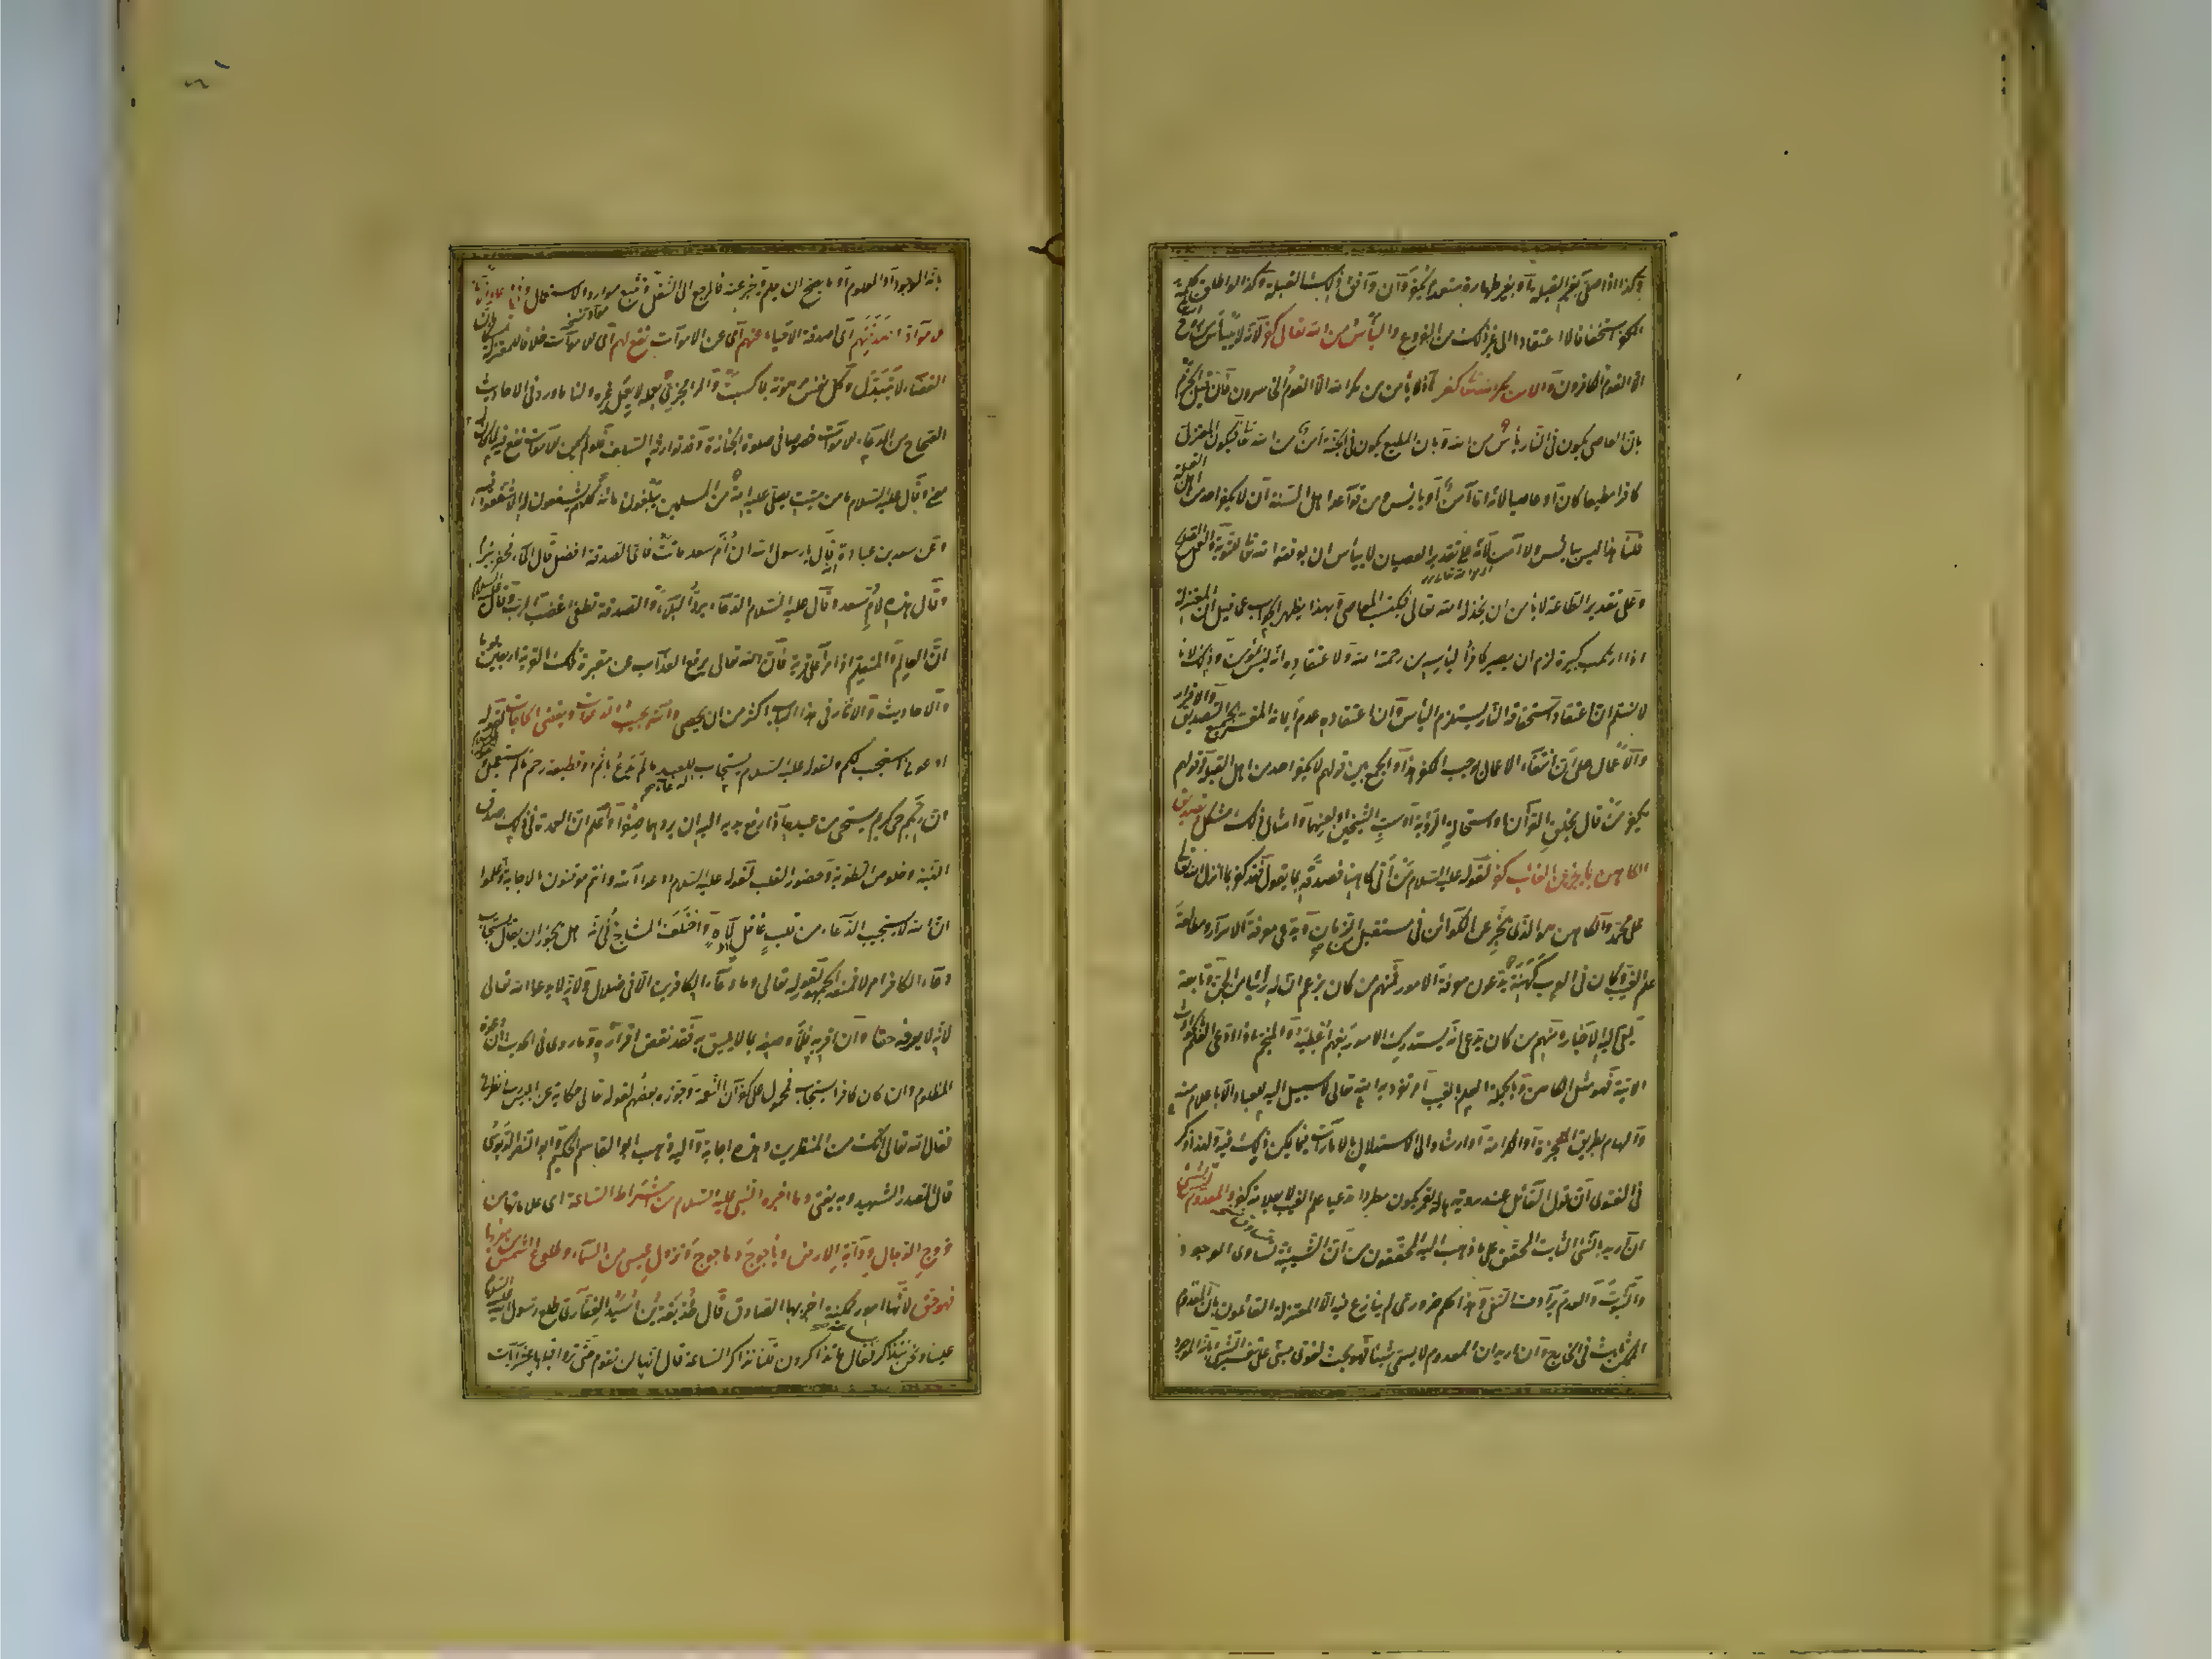 وكذا اذا صلى بغير القبلة او بغير طهارة متعمدا يكفر وان وافق ذلك القبلة وكذا لو اطلق كلمة
الكفر استخفافا لا اعتقادا الى غير ذلك من الفروع والياس من الله تعالى كفر لانه لا ييأس من روح
الله الا القوم الكافرون والامن من مكر الله تعالى كفر اذ لا يأمن من مكر الله الا القوم الخاسرون فان قيل الجزم
بان العاصي يكون في النار يأس من الله وبان المطيع يكون في الجنة امن من الله تعالى فيكون المعتزلي
كافرا مطيعا كان او عاصيا لانه اما آمن او آيس ومن قواعد اهل السنة ان لا يكفر احد من اهل القبلة
قلنا هذا ليس بيأس ولا امن لانه على تقدير العصيان لا ييأس ان يوفقه الله تعالى للتوبة والعمل الصالح
وعلى تقدير الطاعة لا يأمن ان يخذله الله تعالى فيكتسب المعاصي وبهذا يظهر الجواب عما قيل ان المعتزلي
اذا ارتكب كبيرة لزم ان يصير كافرا ليأسه من رحمة الله ولاعتقاده انه ليس بمؤمن وذلك لانا
لا نسلم ان اعتقاد استحقاقه النار يستلزم اليأس وان اعتقاده عدم ايمانه المفسر بمجموع التصديق والاقرار
والاعمال بناء على انتفاء الاعمال يوجب الكفر هذا والجمع بين قولهم لا يكفر احد من اهل القبلة وقولهم
يكفر من قال بخلق القرآن او استحالة الرؤية او سب الشيخين او لعنهما وامثال ذلك مشكل وتصديق
الكاهن بما يخبره عن الغائب كفر لقوله عليه السلام من اتى كاهنا فصدقه بما يقول فقد كفر بما انزل الله تعالى
على محمد والكاهن هو الذي يخبر عن الكوائن في مستقبل الزمان ويدعي معرفة الاسرار ومطالعة
علم الغيب وكان في العرب كهنة يدعون معرفة الامور فمنهم من كان يزعم ان له رئيا من الجن وتابعة
يلقي اليه الاخبار ومنهم من كان يدعي انه يستدرك الامور بفهم اعطيه والمنجم اذا ادعى العلم بالحوادث
الآتية فهو مثل الكاهن وبالجملة العلم بالغيب امر تفرد به الله تعالى لا سبيل اليه للعباد الا باعلام منه
والهام بطريق المعجزة او الكرامة او ارشاد الى الاستدلال بالامارات فيما يمكن ذلك فيه ولهذا ذكر
في الفتاوى ان قول القائل عند رؤية هالة القمر يكون مطر مدعيا علم الغيب لا بعلامة كفر والمعدوم ليس بشيء
ان اريد بالشيء الثابت المحقق على ما ذهب اليه المحققون من ان الشيئية تساوق الوجود
والثبوت والعدم يرادف النفي وهذا حكم ضروري لم ينازع فيه الا المعتزلة القائلون بان المعدوم
الممكن ثابت في الخارج وان اريد ان المعدوم لا يسمى شيئا فهو بحث لغوي مبني على تفسير الشيء بانه الموجود
بانه الموجود او المعلوم او ما يصح ان يعلم ويخبر عنه فالمرجع الى النقل وتتبع موارد الاستعمال وفي دعاء الاحياء
للاموات او صدقتهم اي صدقة الاحياء عنهم اي عن الاموات نفع لهم اي للاموات خلافا للمعتزلة تمسكا بان
القضاء لا يتبدل وكل نفس مرهونة بما كسبت والمرء مجزي بعمله لا بعمل غيره ولنا ما ورد في الاحاديث
الصحاح من الدعاء للاموات خصوصا في صلوة الجنازة وقد توارثه السلف فلو لم يكن للاموات نفع فيه لما كان له
معنى وقال عليه السلام ما من ميت يصلي عليه امة من المسلمين يبلغون مائة كلهم يشفعون له الا شفعوا فيه
وعن سعد بن عبادة انه قال يا رسول الله ان ام سعد ماتت فاي الصدقة افضل قال الماء فحفر بئرا
وقال هذه لام سعد وقال عليه السلام الدعاء يرد البلاء والصدقة تطفئ غضب الرب وقال عليه السلام
ان العالم والمتعلم اذا مرا على قرية فان الله تعالى يرفع العذاب عن مقبرة تلك القرية اربعين يوما
والاحاديث والآثار في هذا الباب اكثر من ان يحصى والله يجيب الدعوات ويقضي الحاجات لقوله تعالى
ادعوني استجب لكم ولقوله عليه السلام يستجاب للعبد ما لم يدع باثم او قطيعة رحم ما لم يستعجل
ان ربكم حيي كريم يستحيي من عبده اذا رفع يديه اليه ان يردهما صفرا واعلم ان العمدة في ذلك صدق
النية وخلوص الطوية وحضور القلب لقوله عليه السلام ادعوا الله وانتم موقنون بالاجابة واعلموا
ان الله لا يستجيب الدعاء من قلب غافل لاه واختلف المشايخ في انه هل يجوز ان يقال يستجاب
دعاء الكافر ام لا فمنعه الجمهور لقوله تعالى وما دعاء الكافرين الا في ضلال ولانه لا يدعو الله تعالى
لانه لا يعرفه حقا وان اقر به فلما وصفه بما لا يليق به فقد نقض اقراره وما روي في الحديث ان دعوة
المظلوم وان كان كافرا يستجاب فمحمول على كفران النعمة وجوزه بعضهم لقوله تعالى حكاية عن ابليس رب انظرني
فقال الله تعالى انك من المنظرين وهذه اجابة واليه ذهب ابو القاسم الحكيم وابو النصر الدبوسي
قال الصدر الشهيد وبه يفتى وما اخبره النبي عليه السلام من اشراط الساعة اي علاماتها من
خروج الدجال ودابة الارض ويأجوج ومأجوج ونزول عيسى من السماء وطلوع الشمس من مغربها
فهو حق لانها امور ممكنة اخبر بها الصادق قال حذيفة بن اسيد الغفاري طلع رسول الله عليه السلام
علينا ونحن نتذاكر فقال ما تذاكرون قلنا نذاكر الساعة قال انها لن تقوم حتى تروا قبلها عشر آيات